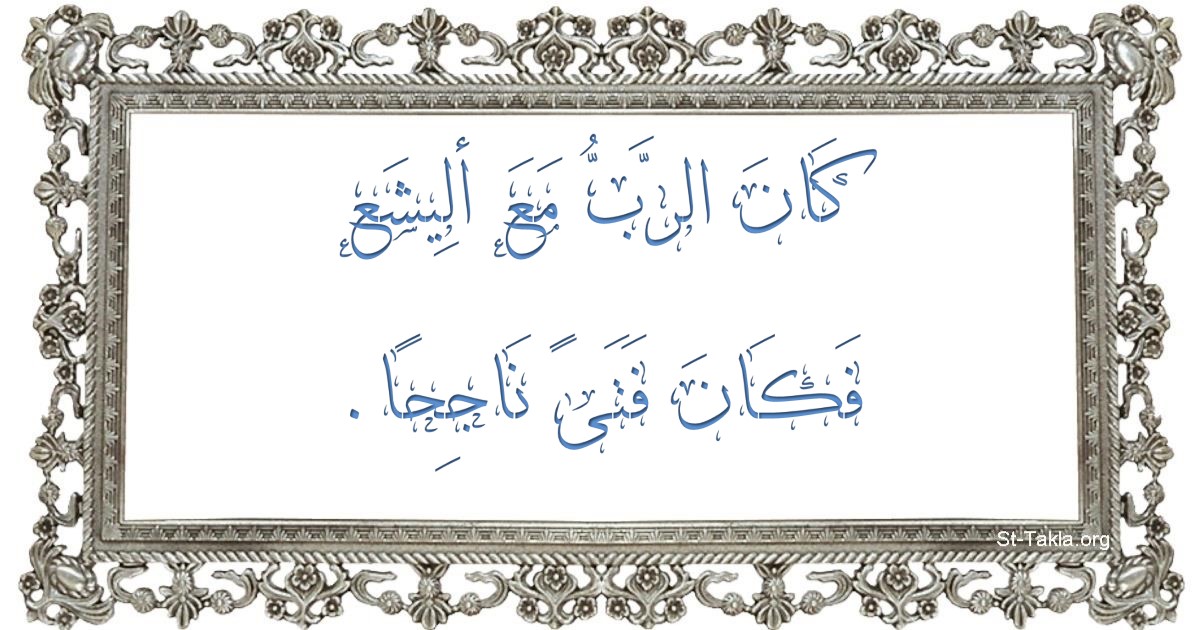 كَانَ الرَّبُّ مَعَ أَلِيشَع
فَكَانَ فَتَىً نَاجِحًا .
St-Takla.org